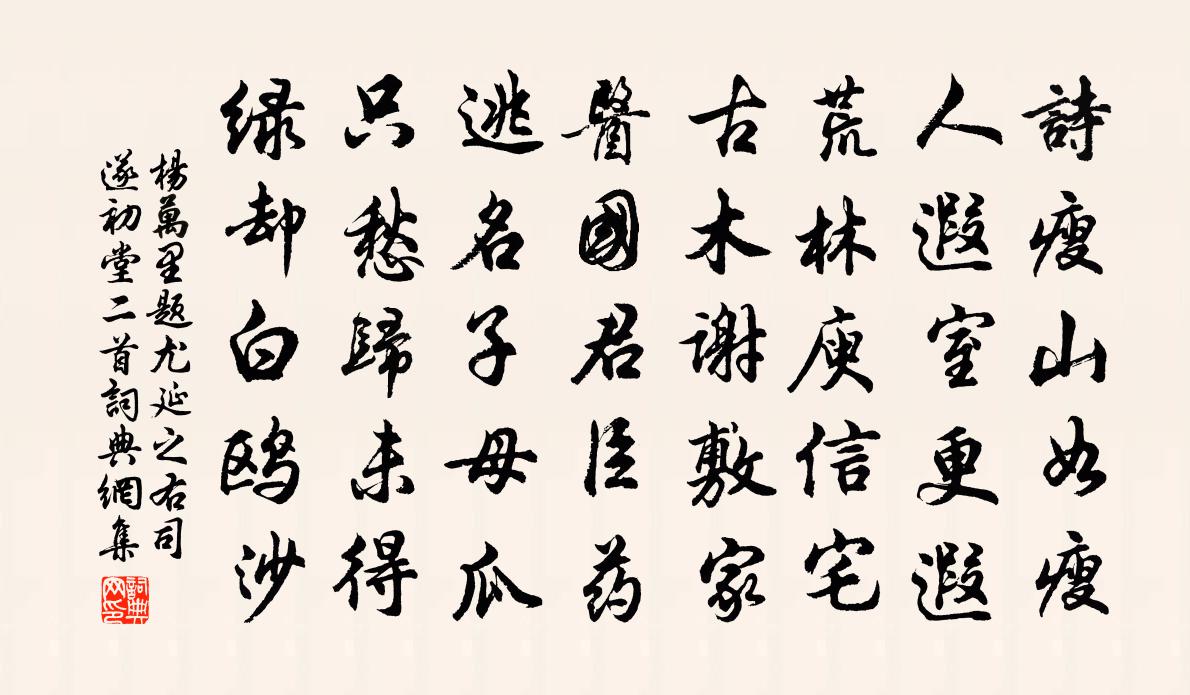 詩瘦山如瘦
人遐室更遐
荒林庾信宅
古木謝敷家
醫國君臣药
逃名子母瓜
只愁歸未得
緑却白鸥沙
楊萬里題尤延之右司
遂初堂二首詞典網集
詞典网印